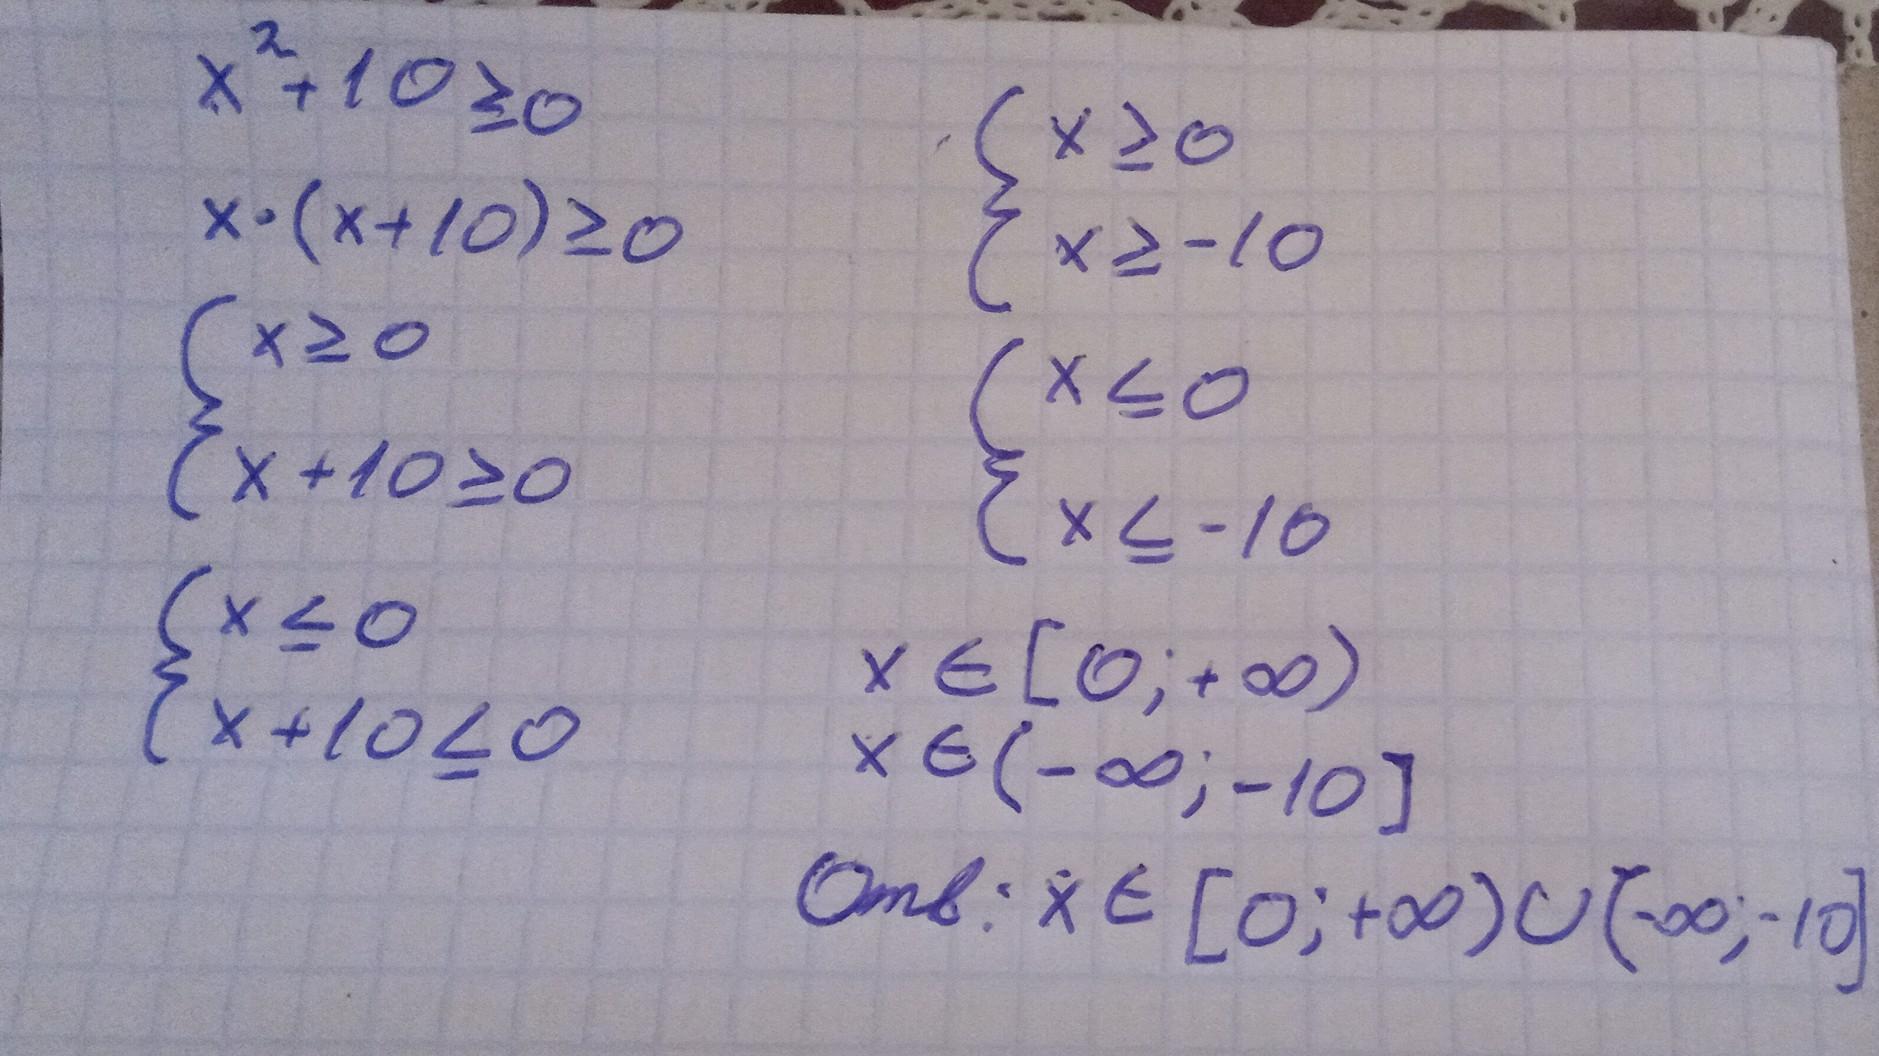 x²+10≥0
x·(x+10)≥0
{x≥0
{x+10≥0
{x≤0
{x+10≤0
{x≥0
{x≥-10
{x≤0
{x≤-10
x∈[0;+∞)
x∈(-∞;-10]
Отв: x∈[0;+∞)∪(-∞;-10]